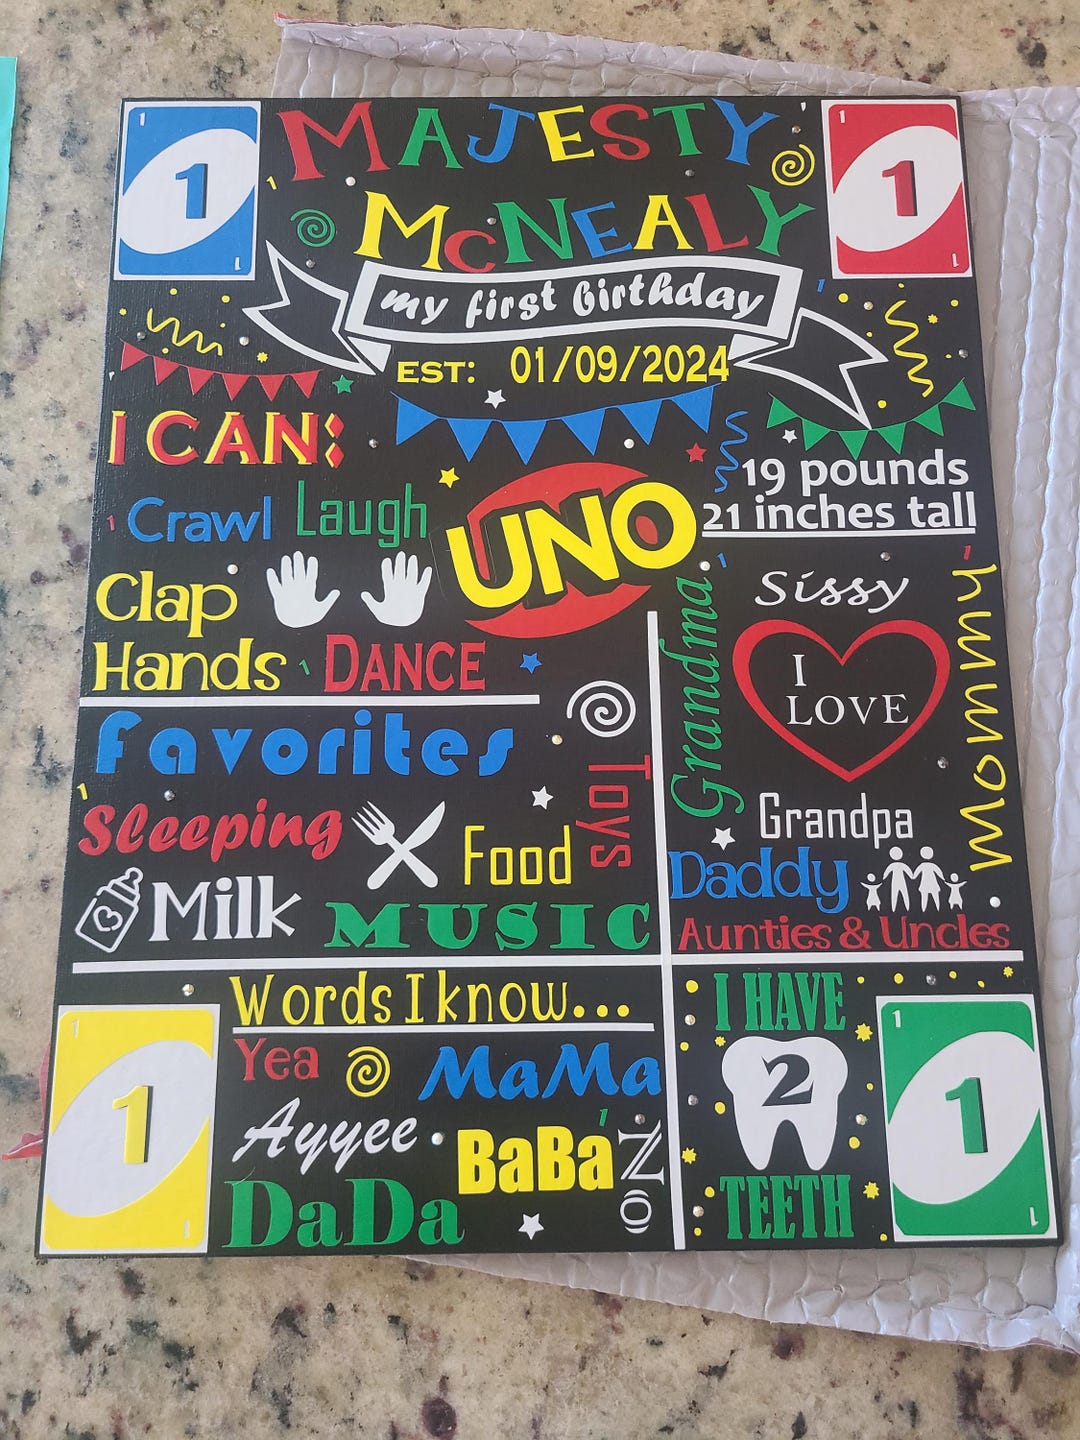 1
1
MAJESTY
1
1
McNEALY
1
1
my first birthday
EST: 01/09/2024
I CAN:
19 pounds
21 inches tall
Crawl
Laugh
UNO
Clap
Hands
DANCE
Sissy
Grandma
Mommy
I
LOVE
Grandpa
Daddy
Aunties & Uncles
Favorites
Toys
Sleeping
Food
Milk
MUSIC
Words I know...
Yea
MaMa
Ayyee
BaBa
No
DaDa
I HAVE
2
TEETH
1
1
1
1
1
1